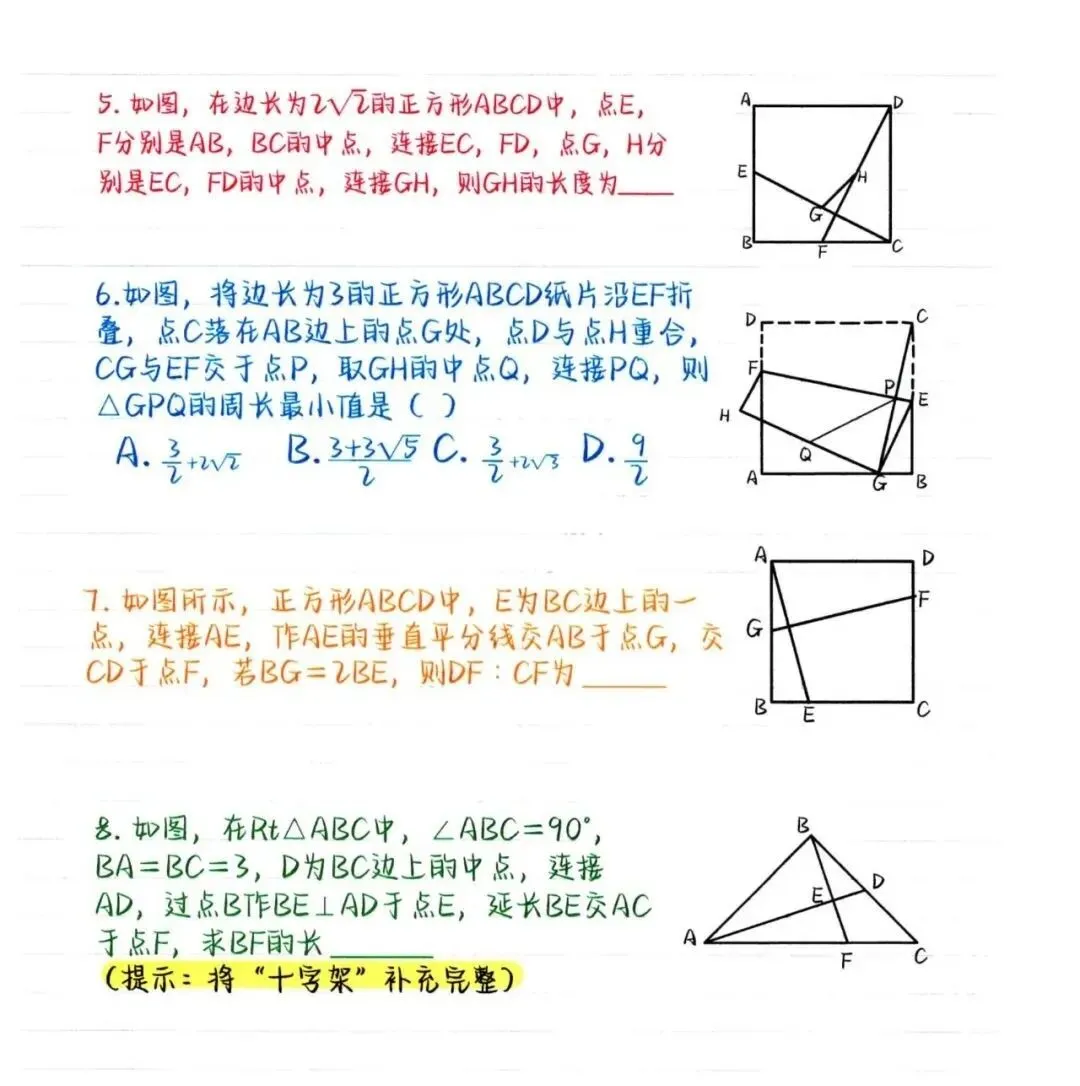 5. 如图，在边长为2√2的正方形ABCD中，点E，
F分别是AB，BC的中点，连接EC，FD，点G，H分
别是EC，FD的中点，连接GH，则GH的长度为____
A
D
E
H
G
B
F
C
6.如图，将边长为3的正方形ABCD纸片沿EF折
叠，点C落在AB边上的点G处，点D与点H重合，
CG与EF交于点P，取GH的中点Q，连接PQ，则
△GPQ的周长最小值是（ ）
A. 3/2+2√2 B. (3+3√5)/2 C. 3/2+2√3 D. 9/2
D
C
F
P
E
H
Q
A
G
B
7. 如图所示，正方形ABCD中，E为BC边上的一
点，连接AE，作AE的垂直平分线交AB于点G，交
CD于点F，若BG=2BE，则DF：CF为______
A
D
F
G
B
E
C
8. 如图，在Rt△ABC中，∠ABC=90°，
BA=BC=3，D为BC边上的中点，连接
AD，过点B作BE⊥AD于点E，延长BE交AC
于点F，求BF的长________
（提示：将“十字架”补充完整）
B
E
D
A
F
C